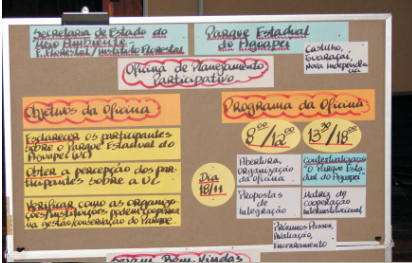 Secretaria de Estado do
Meio Ambiente
F. Florestal / Instituto Florestal
Parque Estadual
do Aguapeí
Castilho,
Guaraçaí,
Nova Independên
cia
Oficina de Planejamento
Participativo
Objetivos da Oficina
Esclarecer os participantes
sobre o Parque Estadual do
Aguapeí (UC)
Obter a percepção dos par-
ticipantes sobre a UC
Verificar como as organiza-
ções/instituições podem cooperar
na gestão/conservação do Parque.
Programa da Oficina
8:00/12:00
13:30/18:00
Dia
18/11
Abertura,
Organização
da oficina
Propostas
de
Integração
Contextualização
"O Parque Esta
dual do Aguapeí"
Matriz de
Cooperação
Interinstitucional
Próximos Passos,
Avaliação
Encerramento
Sejam Bem-Vindos